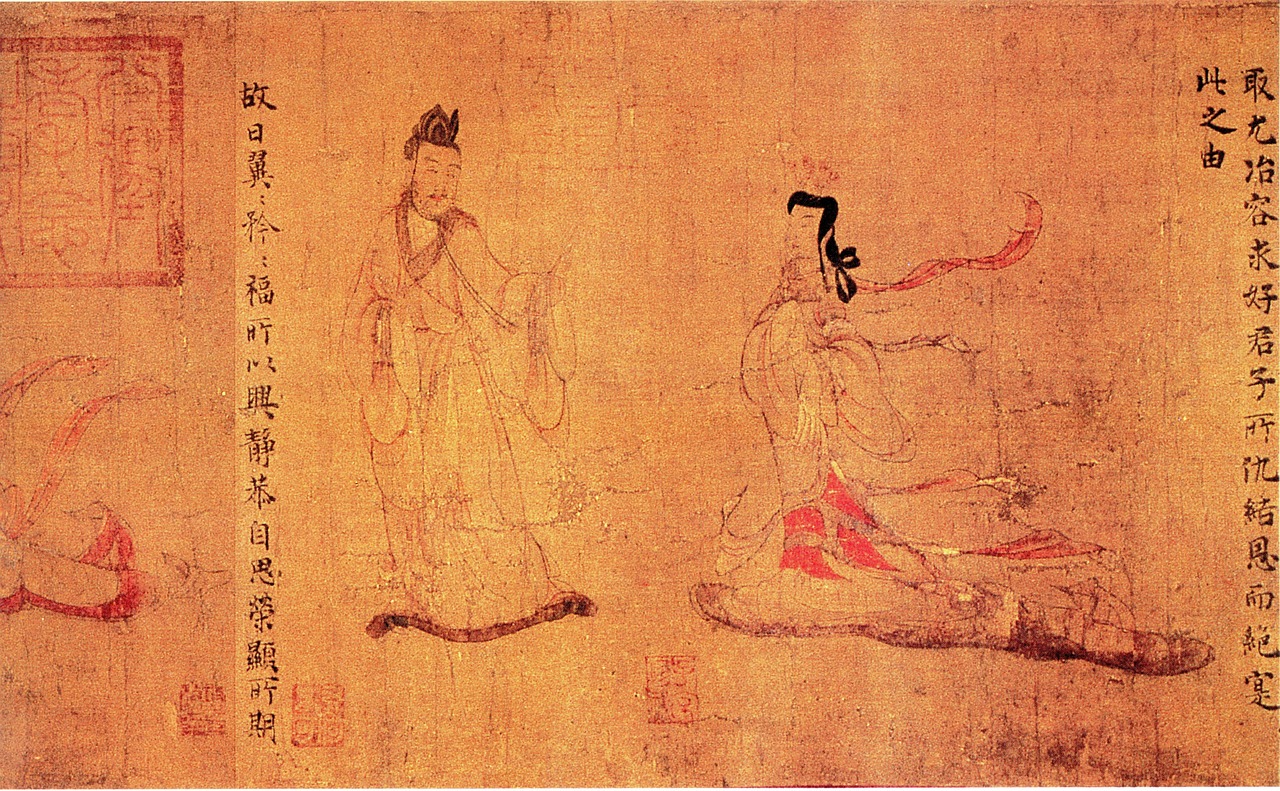 取尤冶容求好君子所仇結恩而絕寔
此之由
故曰翼〻矜〻福所以興靜恭自思榮顯所期